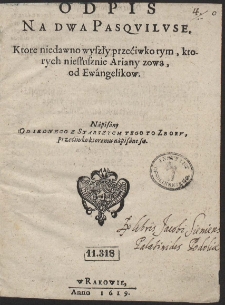 ODPIS
NA DWA PASQVILVSE,
Ktore niedawno wyszły przećiwko tym, kto-
rych niesłusznie Ariany zowa,
od Ewángelikow.
Nápisány
OD IEDNEGO Z STARSZYCH TEGO TO ZBORV,
przećiwko ktoremu nápisáne są.
Ex Libris Jacobi Sienieński
Palatinidis Podoliae
11.318
W RAKOWIE,
Anno 1619.